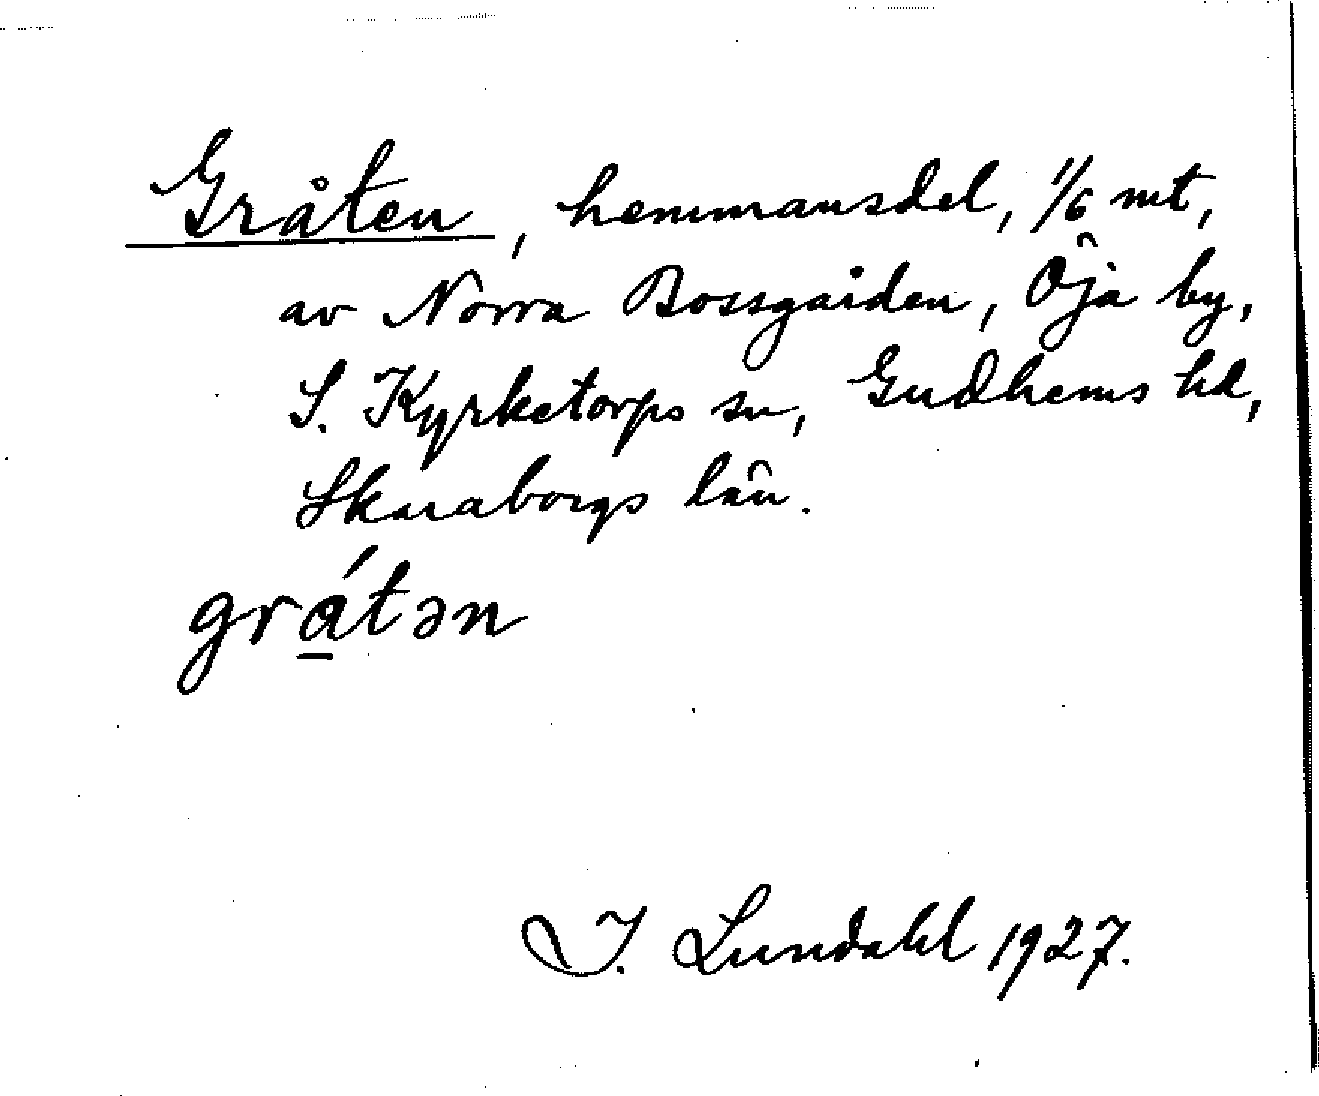 Gråten, hemmansdel, 1/6 mt,
av Norra Bossgården, Öja by,
S. Kyrketorps sn, Gudhems hd,
Skaraborgs län.
grá̱tən
I. Lundahl 1927.